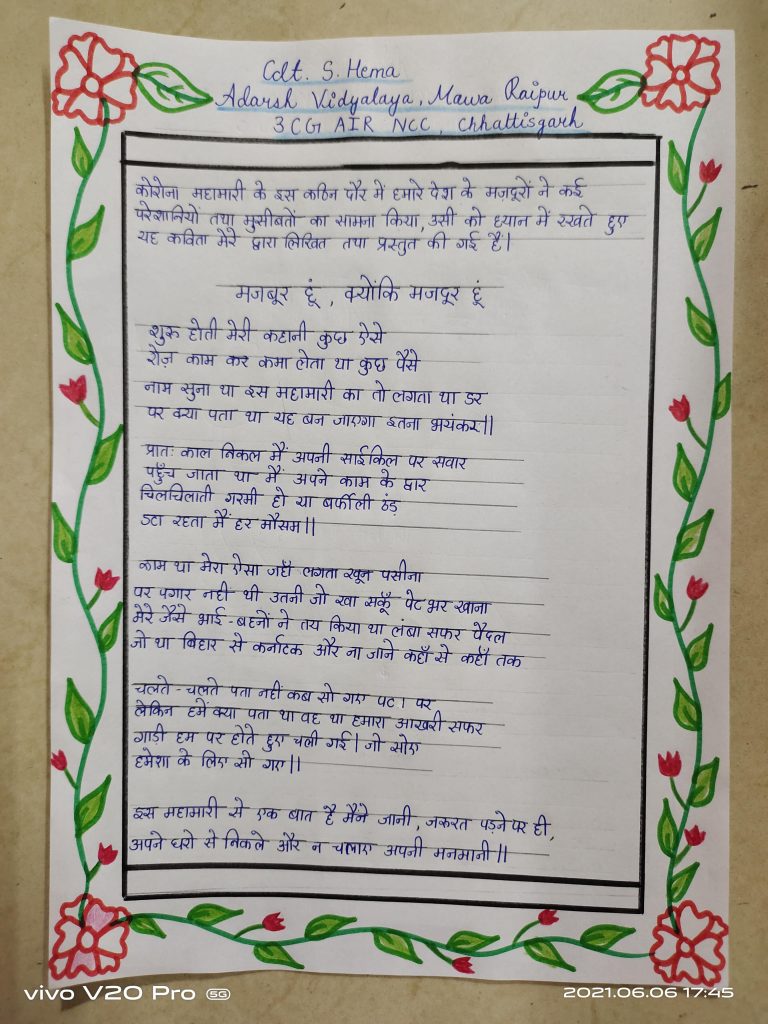 Cdt. S. Hema
Adarsh Vidyalaya, Mawa Raipur
3 CG AIR NCC, Chhattisgarh
कोरोना महामारी के इस कठिन दौर में हमारे देश के मज़दूरों ने कई
परेशानियों तथा मुसीबतों का सामना किया, उसी को ध्यान में रखते हुए
यह कविता मेरे द्वारा लिखित तथा प्रस्तुत की गई है।
मजबूर हूं , क्योंकि मजदूर हूं
शुरू होती मेरी कहानी कुछ ऐसे
रोज़ काम कर कमा लेता था कुछ पैसे
नाम सुना था इस महामारी का तो लगता था डर
पर क्या पता था यह बन जाएगा इतना भयंकर॥
प्रातः काल निकल मैं अपनी साईकिल पर सवार
पहुँच जाता था मैं अपने काम के द्वार
चिलचिलाती गरमी हो या बर्फीली ठंड़
डटा रहता मैं हर मौसम॥
काम था मेरा ऐसा जहाँ लगता खून पसीना
पर पगार नही थी उतनी जो खा सकूँ पेट भर खाना
मेरे जैसे भाई-बहनों ने तय किया था लंबा सफर पैदल
जो था बिहार से कर्नाटक और ना जाने कहाँ से कहाँ तक
चलते-चलते पता नहीं कब सो गए पट। पर
लेकिन हमें क्या पता था वह था हमारा आखरी सफर
गाड़ी हम पर होते हुए चली गई। जो सोए
हमेशा के लिए सो गए॥
इस महामारी से एक बात है मैंने जानी, जरूरत पड़ने पर ही,
अपने घरो से निकले और न चलाए अपनी मनमानी॥
vivo V20 Pro 5G
2021.06.06 17:45